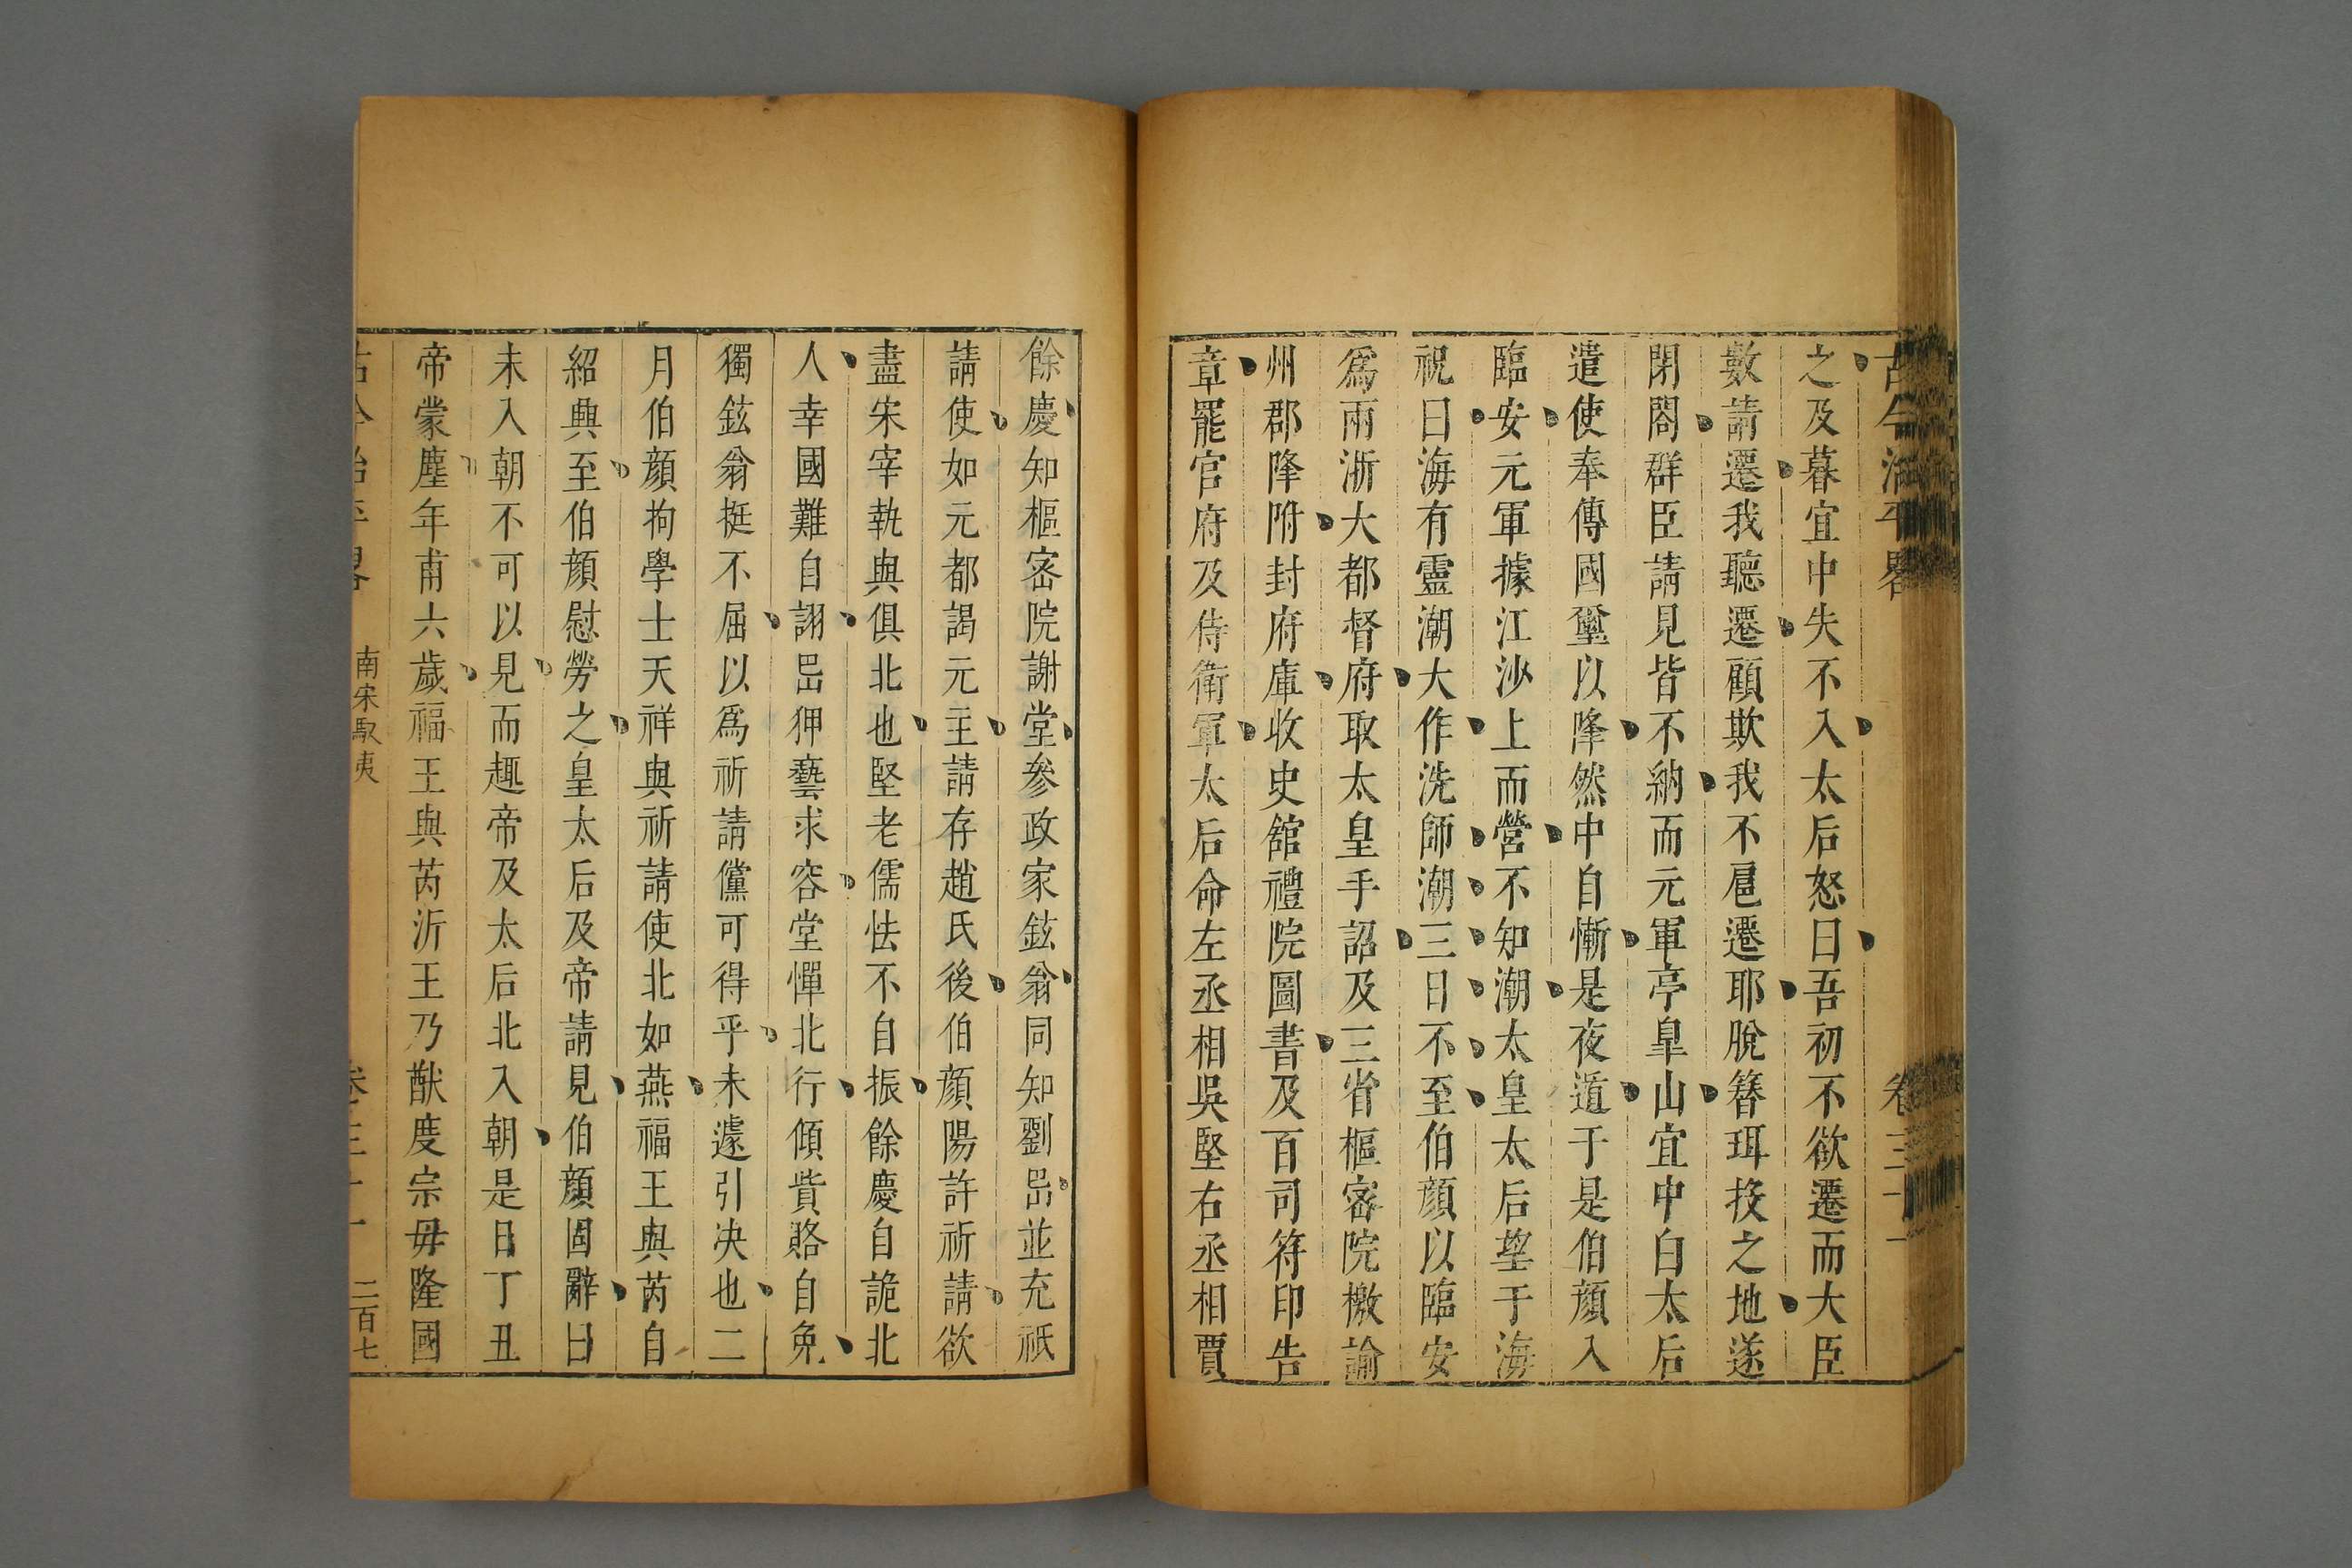 古今治平畧 卷三十一
之及暮宜中失不入太后怒曰吾初不欲遷而大臣
數請遷我聽遷顧欺我不扈遷耶脫簪珥投之地遂
閉閤群臣請見皆不納而元軍亭皐山宜中白太后
遣使奉傳國璽以降然中自慚是夜遁于是伯顏入
臨安元軍據江沙上而營不知潮太皇太后望于海
祝曰海有靈潮大作洗師潮三日不至伯顏以臨安
爲兩浙大都督府取太皇手詔及三省樞密院檄諭
州郡降附封府庫收史舘禮院圖書及百司符印告
章罷官府及侍衛軍太后命左丞相吳堅右丞相賈
餘慶知樞密院謝堂參政家鉉翁同知劉岊並充祇
請使如元都謁元主請存趙氏後伯顏陽許祈請欲
盡宋宰執與俱北也堅老儒怯不自振餘慶自詭北
人幸國難自詡岊狎褻求容堂憚北行傾貲賂自免
獨鉉翁挺不屈以爲祈請儻可得乎未遽引决也二
月伯顏拘學士天祥與祈請使北如燕福王與芮自
紹興至伯顏慰勞之皇太后及帝請見伯顏固辭曰
未入朝不可以見而趣帝及太后北入朝是日丁丑
帝蒙塵年甫六歲福王與芮沂王乃猷度宗毋隆國
古今治平畧 南宋馭夷 卷三十一 二百七